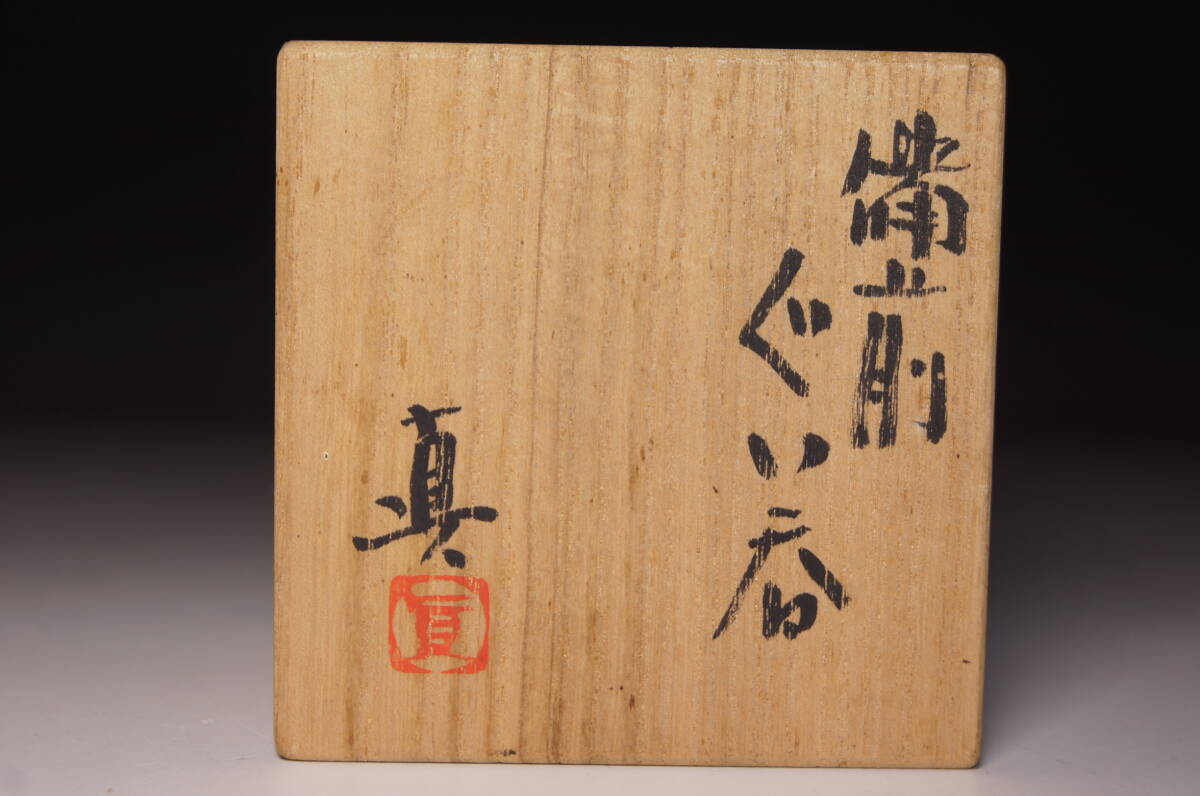 備前
ぐい呑
真
眞